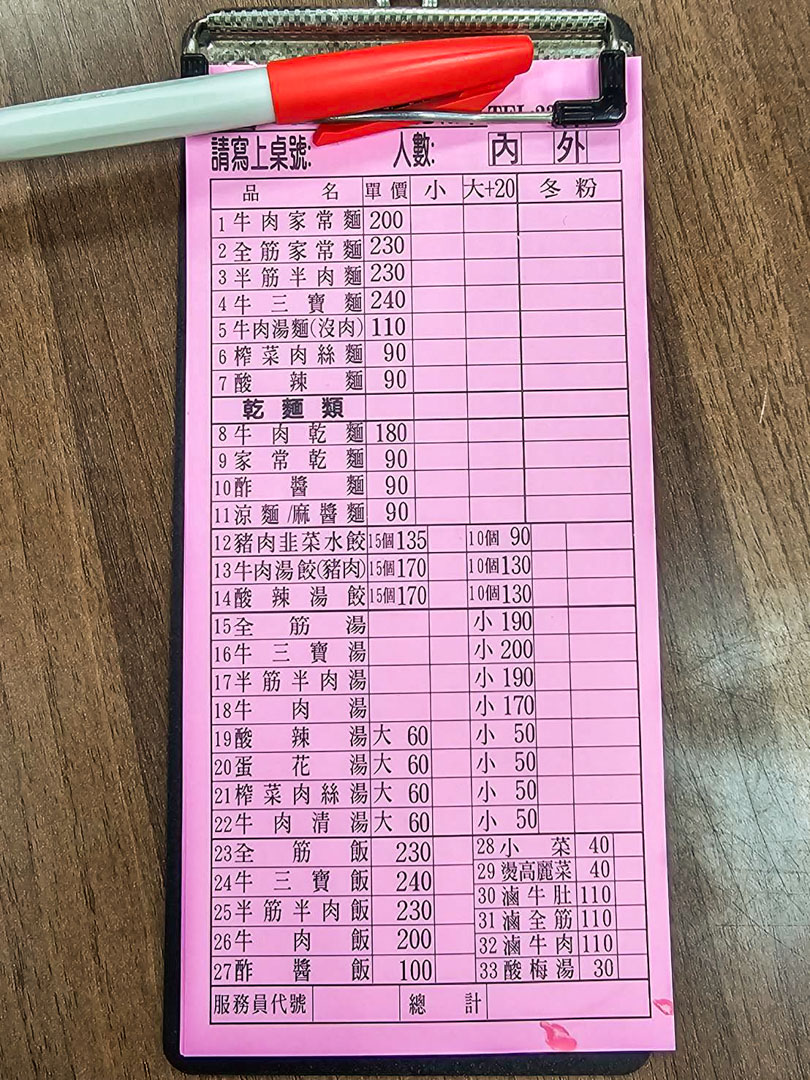 請寫上桌號: 人數: 內 外
品名 單價 小 大+20 冬粉
1 牛肉家常麵 200
2 全筋家常麵 230
3 半筋半肉麵 230
4 牛三寶麵 240
5 牛肉湯麵(沒肉) 110
6 榨菜肉絲麵 90
7 酸辣麵 90
乾麵類
8 牛肉乾麵 180
9 家常乾麵 90
10 酢醬麵 90
11 涼麵/麻醬麵 90
12 豬肉韭菜水餃 15個 135 10個 90
13 牛肉湯餃(豬肉) 15個 170 10個 130
14 酸辣湯餃 15個 170 10個 130
15 全筋湯 小 190
16 牛三寶湯 小 200
17 半筋半肉湯 小 190
18 牛肉湯 小 170
19 酸辣湯 大 60 小 50
20 蛋花湯 大 60 小 50
21 榨菜肉絲湯 大 60 小 50
22 牛肉清湯 大 60 小 50
23 全筋飯 230
24 牛三寶飯 240
25 半筋半肉飯 230
26 牛肉飯 200
27 酢醬飯 100
28 小菜 40
29 燙高麗菜 40
30 滷牛肚 110
31 滷全筋 110
32 滷牛肉 110
33 酸梅湯 30
服務員代號 總計